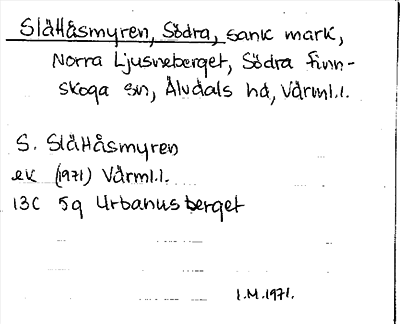 Slåttåsmyren, Södra, sank mark,
Norra Ljusneberget, Södra Finn-
skoga sn, Älvdals hd, Värml.l.
S. Slåttåsmyren
ek (1971) Värml.l.
13C 5g Urbanusberget
I.M.1971.